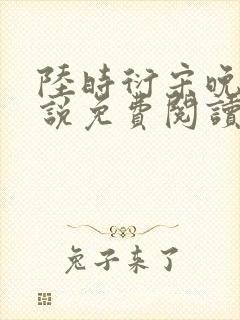 陸時衍宋晚
說免費閱讀
兔子来了